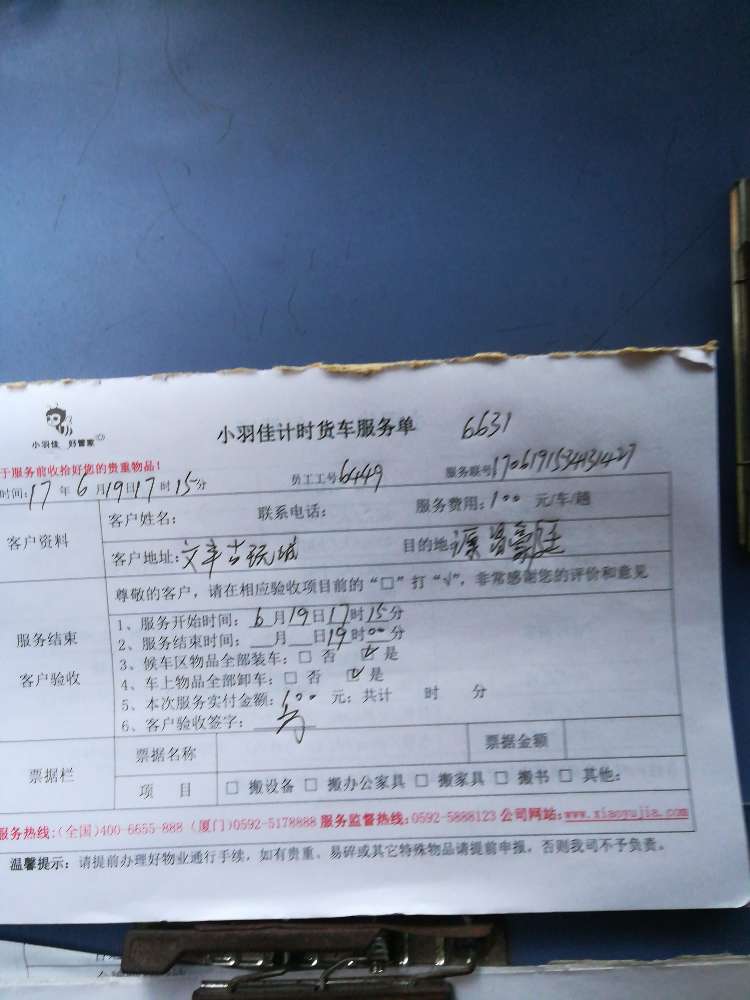 小羽佳 好管家
小羽佳计时货车服务单 6631
于服务前收拾好您的贵重物品!
时间:17年6月19日17时15分 员工工号6449 服务联号170619153443427
客户资料
客户姓名: 联系电话: 服务费用:100元/车/趟
客户地址:文丰古玩城 目的地:
服务结束
客户验收
尊敬的客户,请在相应验收项目前的“□”打“√”,非常感谢您的评价和意见
1、服务开始时间:6月19日17时15分
2、服务结束时间:__月__日19时00分
3、候车区物品全部装车:□ 否 ☑ 是
4、车上物品全部卸车:□ 否 ☑ 是
5、本次服务实付金额:100元;共计 时 分
6、客户验收签字:
票据栏
票据名称 票据金额
项 目 □ 搬设备 □ 搬办公家具 □ 搬家具 □ 搬书 □ 其他:
服务热线:(全国)400-6655-888 (厦门)0592-5178888 服务监督热线:0592-5888123 公司网站:www.xiaoyujia.com
温馨提示:请提前办理好物业通行手续,如有贵重、易碎或其它特殊物品请提前申报,否则我司不予负责。